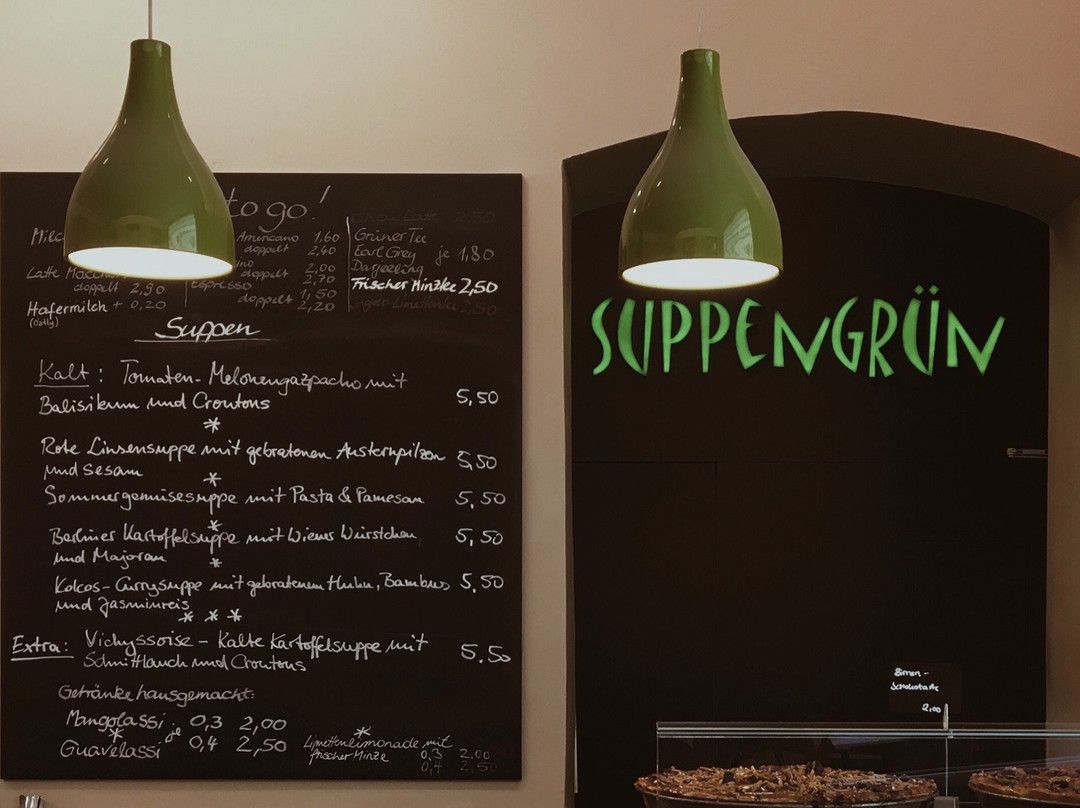 to go!
Milc
Latte Macc
doppelt 2,90
Hafermilch + 0,20
(Oatly)
Americano 1,60
doppelt 2,40
ino 2,00
doppelt 2,70
Espresso 1,50
doppelt 2,20
2,50
Grüner Tee
Earl Grey je 1,80
Darjeeling
Frischer Minztee 2,50
2,50
Suppen
Kalt: Tomaten-Melonengazpacho mit
Balisikum und Croutons 5,50
*
Rote Linsensuppe mit gebratenen Austernpilzen 5,50
und Sesam
*
Sommergemüsesuppe mit Pasta & Pamesan 5,50
*
Berliner Kartoffelsuppe mit Wiener Würstchen 5,50
und Majoran
*
Kokos-Currysuppe mit gebratenem Huhn, Bambus 5,50
und Jasminreis
* * *
Extra: Vichyssoise - Kalte Kartoffelsuppe mit 5.50
Schnittlauch und Croutons
Getränke hausgemacht:
Mangolassi 0,3 2,00
* je
Guavelassi 0,4 2,50
*
Limettenlimonade mit
frischer Minze 0,3 2,00
0,4 2,50
SUPPENGRÜN
Birnen-
Schokotarte
2,00